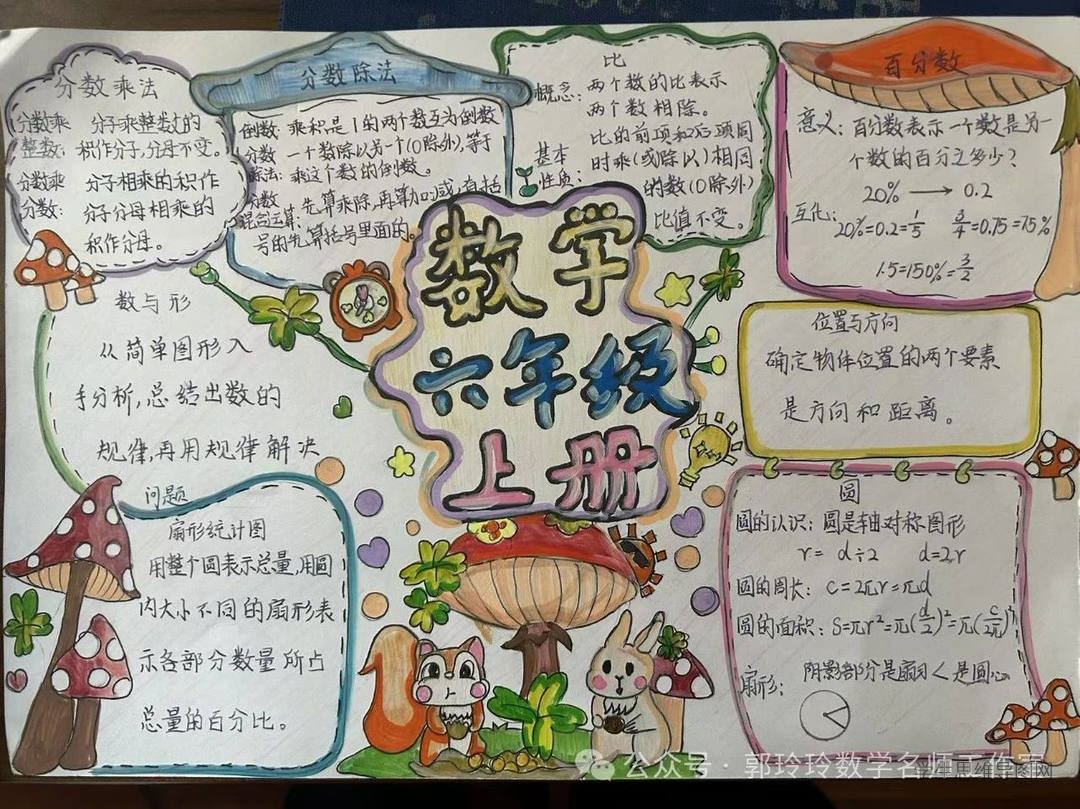 分数乘法
分数乘整数： 分子乘整数的
积作分子，分母不变。
分数乘分数： 分子相乘的积作
分子分母相乘的
积作分母。
分数除法
倒数：乘积是1的两个数互为倒数
分数除法：一个数除以另一个(0除外)，等于
乘这个数的倒数。
混合运算：先算乘除，再算加减，有括
号的先算括号里面的。
比
概念：两个数的比表示
两个数相除。
基本性质：比的前项和后项同
时乘(或除以)相同
的数(0除外)
比值不变。
百分数
意义：百分数表示一个数是另一
个数的百分之多少？
互化：20%→0.2
20%=0.2=1/5 3/4=0.75=75%
1.5=150%=3/2
数学
六年级
上册
数与形
从简单图形入
手分析，总结出数的
规律，再用规律解决
问题
位置与方向
确定物体位置的两个要素
是方向和距离。
扇形统计图
用整个圆表示总量，用圆
内大小不同的扇形表
示各部分数量所占
总量的百分比。
圆
圆的认识：圆是轴对称图形
r= d÷2 d=2r
圆的周长：C=2πr=πd
圆的面积：S=πr²=π(d/2)²=π(C/2π)²
扇形：阴影部分是扇形<是圆心
公众号·郭玲玲数学名师工作室
学生思维导图网